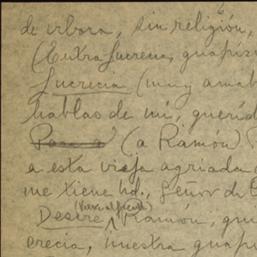 de víbora, sin religión,
(Entra Lucrecia, guapísi
Lucrecia (muy amab
hablas de mí, querid
(a Ramón)
a esta vieja agriada
me tiene Vd., Señor de
Desire (Vase al frente) Ramón, que
crecia, nuestra guapí